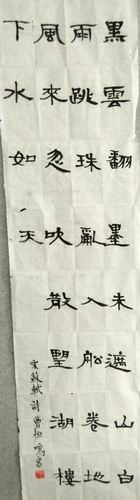 黑雲翻墨未遮山白
雨跳珠亂入船卷地
風來忽吹散望湖樓
下水如天
宋蘇軾詩